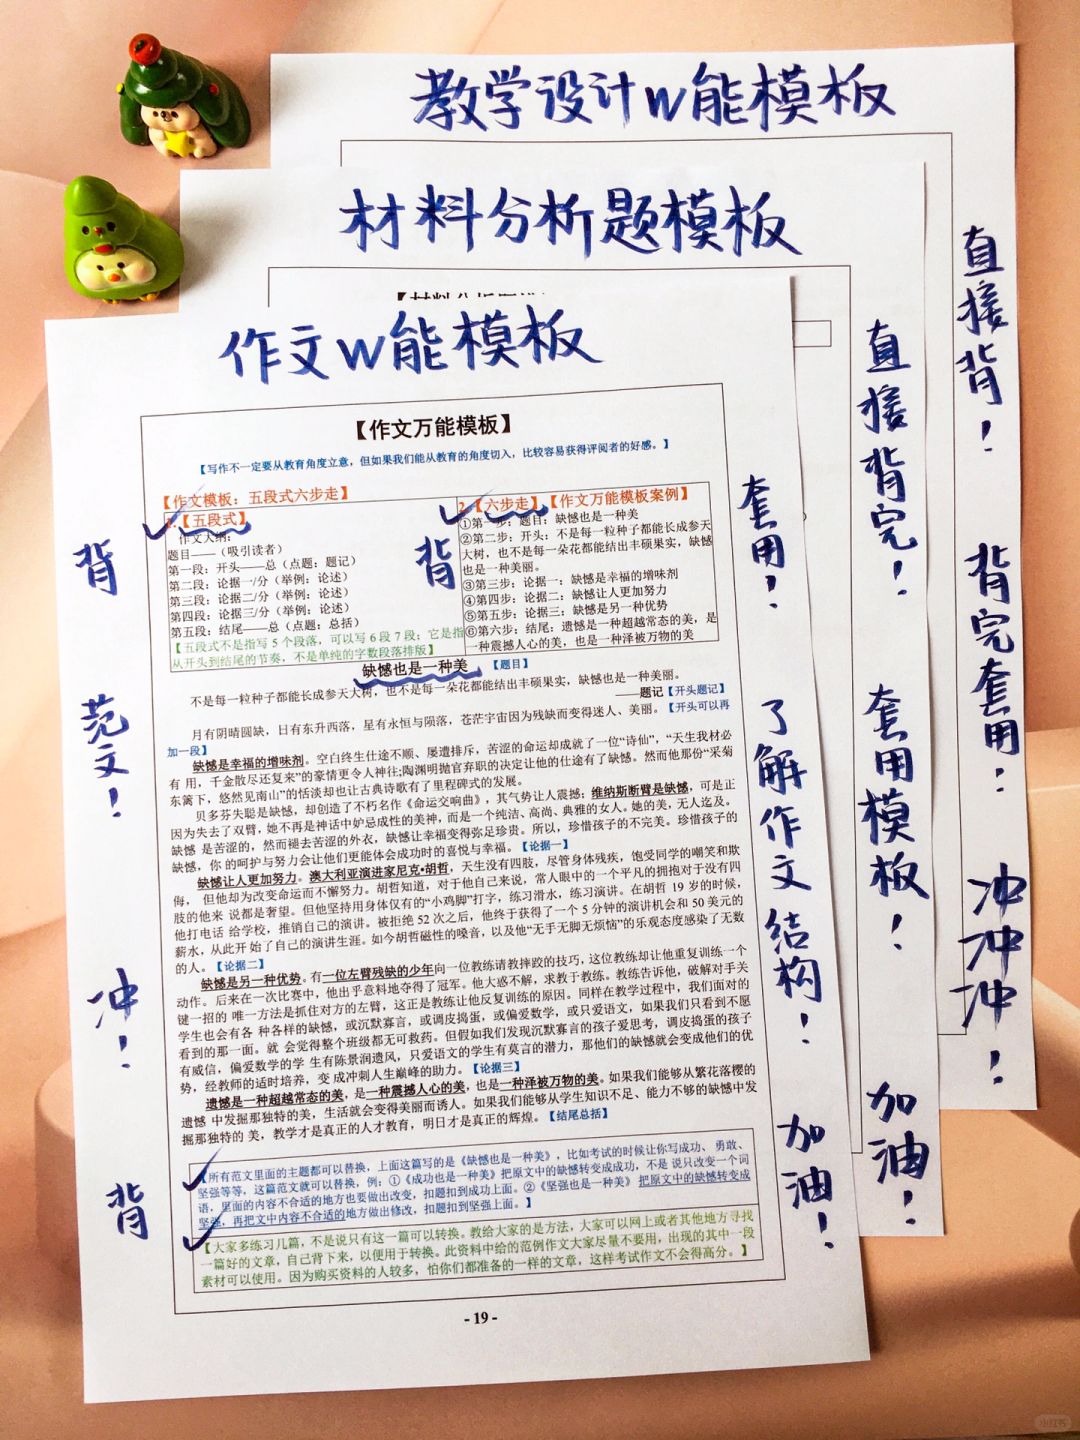 教学设计w能模板
直接背！
背完套用！
冲冲冲！
材料分析题模板
直接背完！
套用模板！
加油！
作文w能模板
套用！
了解作文结构！
加油！
背
范文！
冲！
背
背
【作文万能模板】
【写作不一定要从教育角度立意，但如果我们能从教育的角度切入，比较容易获得评阅者的好感。】
【作文模板：五段式六步走】
1.【五段式】
作文大纲：
题目——（吸引读者）
第一段：开头——总（点题：题记）
第二段：论据一/分（举例：论述）
第三段：论据二/分（举例：论述）
第四段：论据三/分（举例：论述）
第五段：结尾——总（点题：总括）
【五段式不是指写 5 个段落，可以写 6 段 7 段；它是指
从开头到结尾的节奏，不是单纯的字数段落排版】
2.【六步走】【作文万能模板案例】
①第一步：题目：缺憾也是一种美
②第二步：开头：不是每一粒种子都能长成参天
大树，也不是每一朵花都能结出丰硕果实，缺憾
也是一种美丽。
③第三步：论据一：缺憾是幸福的增味剂
④第四步：论据二：缺憾让人更加努力
⑤第五步：论据三：缺憾是另一种优势
⑥第六步：结尾：遗憾是一种超越常态的美，是
一种震撼人心的美，也是一种泽被万物的美
缺憾也是一种美 【题目】
不是每一粒种子都能长成参天大树，也不是每一朵花都能结出丰硕果实，缺憾也是一种美丽。
——题记【开头题记】
月有阴晴圆缺，日有东升西落，星有永恒与陨落，苍茫宇宙因为残缺而变得迷人、美丽。【开头可以再
加一段】
缺憾是幸福的增味剂。空白终生仕途不顺、屡遭排斥，苦涩的命运却成就了一位“诗仙”，“天生我材必
有 用，千金散尽还复来”的豪情更令人神往;陶渊明抛官弃职的决定让他的仕途有了缺憾。然而他那份“采菊
东篱下，悠然见南山”的恬淡却也让古典诗歌有了里程碑式的发展。
贝多芬失聪是缺憾，却创造了不朽名作《命运交响曲》，其气势让人震撼；维纳斯断臂是缺憾，可是正
因为失去了双臂,她不再是神话中妒忌成性的美神，而是一个纯洁、高尚、典雅的女人。她的美，无人迄及。
缺憾 是苦涩的，然而褪去苦涩的外衣，缺憾让幸福变得弥足珍贵。所以，珍惜孩子的不完美。珍惜孩子的
缺憾，你 的呵护与努力会让他们更能体会成功时的喜悦与幸福。【论据一】
缺憾让人更加努力。澳大利亚演进家尼克•胡哲，天生没有四肢，尽管身体残疾，饱受同学的嘲笑和欺
侮， 但他却为改变命运而不懈努力。胡哲知道，对于他自己来说，常人眼中的一个平凡的拥抱对于没有四
肢的他来 说都是奢望。但他坚持用身体仅有的“小鸡脚”打字，练习滑水，练习演讲。在胡哲 19 岁的时候，
他打电话 给学校，推销自己的演讲。被拒绝 52 次之后，他终于获得了一个 5 分钟的演讲机会和 50 美元的
薪水，从此开 始了自己的演讲生涯。如今胡哲磁性的嗓音，以及他“无手无脚无烦恼”的乐观态度感染了无数
的人。【论据二】
缺憾是另一种优势。有一位左臂残缺的少年向一位教练请教摔跤的技巧，这位教练却让他重复训练一个
动作。后来在一次比赛中，他出乎意料地夺得了冠军。他大惑不解，求教于教练。教练告诉他，破解对手关
键一招的 唯一方法是抓住对方的左臂，这正是教练让他反复训练的原因。同样在教学过程中，我们面对的
学生也会有各 种各样的缺憾，或沉默寡言，或调皮捣蛋，或偏爱数学，或只爱语文，如果我们只看到不愿
看到的那一面。就 会觉得整个班级都无可救药。但假如我们发现沉默寡言的孩子爱思考，调皮捣蛋的孩子
有威信，偏爱数学的学 生有陈景润遗风，只爱语文的学生有莫言的潜力，那他们的缺憾就会变成他们的优
势，经教师的适时培养，变 成冲刺人生巅峰的助力。【论据三】
遗憾是一种超越常态的美，是一种震撼人心的美，也是一种泽被万物的美。如果我们能够从繁花落樱的
遗憾 中发掘那独特的美，生活就会变得美丽而诱人。如果我们能够从学生知识不足、能力不够的缺憾中发
掘那独特的 美，教学才是真正的人才教育，明日才是真正的辉煌。【结尾总括】
【所有范文里面的主题都可以替换，上面这篇写的是《缺憾也是一种美》，比如考试的时候让你写成功、勇敢、
坚强等等，这篇范文就可以替换，例：①《成功也是一种美》把原文中的缺憾转变成成功，不是 说只改变一个词
语，里面的内容不合适的地方也要做出改变，扣题扣到成功上面。②《坚强也是一种美》 把原文中的缺憾转变成
坚强，再把文中内容不合适的地方做出修改，扣题扣到坚强上面。】
【大家多练习几篇，不是说只有这一篇可以转换。教给大家的是方法，大家可以网上或者其他地方寻找
一篇好的文章，自己背下来，以便用于转换。此资料中给的范例作文大家尽量不要用，出现的其中一段
素材可以使用。因为购买资料的人较多，怕你们都准备的一样的文章，这样考试作文不会得高分。】
- 19 -
小红书